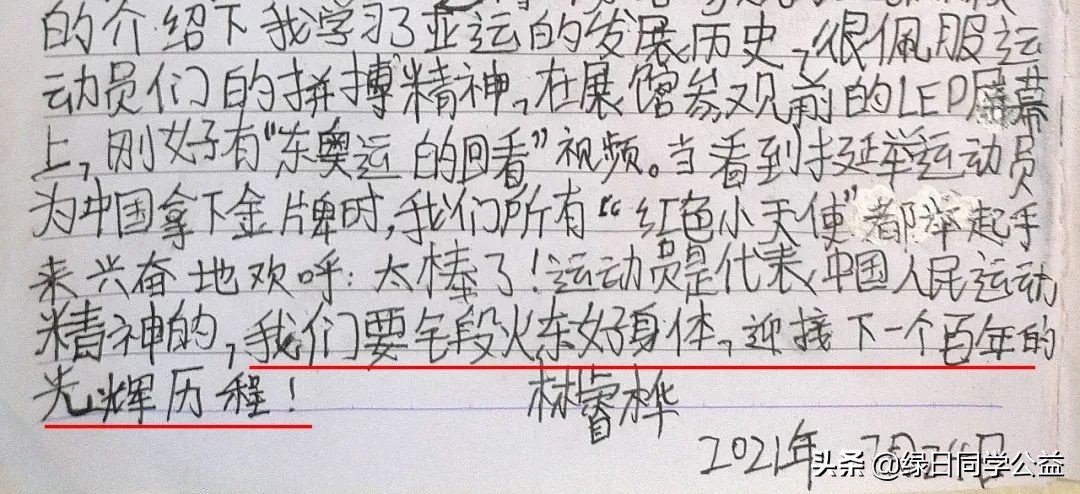 的介绍下我学习了亚运的发展历史，很佩服运
动员们的拼搏精神，在展馆参观前的LED屏幕
上，刚好有“东奥运的回看”视频。当看到挺举运动员
为中国拿下金牌时，我们所有“红色小天使”都举起手
来兴奋地欢呼：太棒了！运动员是代表中国人民运动
精神的，我们要锻炼好身体，迎接下一个百年的
光辉历程！ 林睿桦
2021年
头条 @绿日同学公益